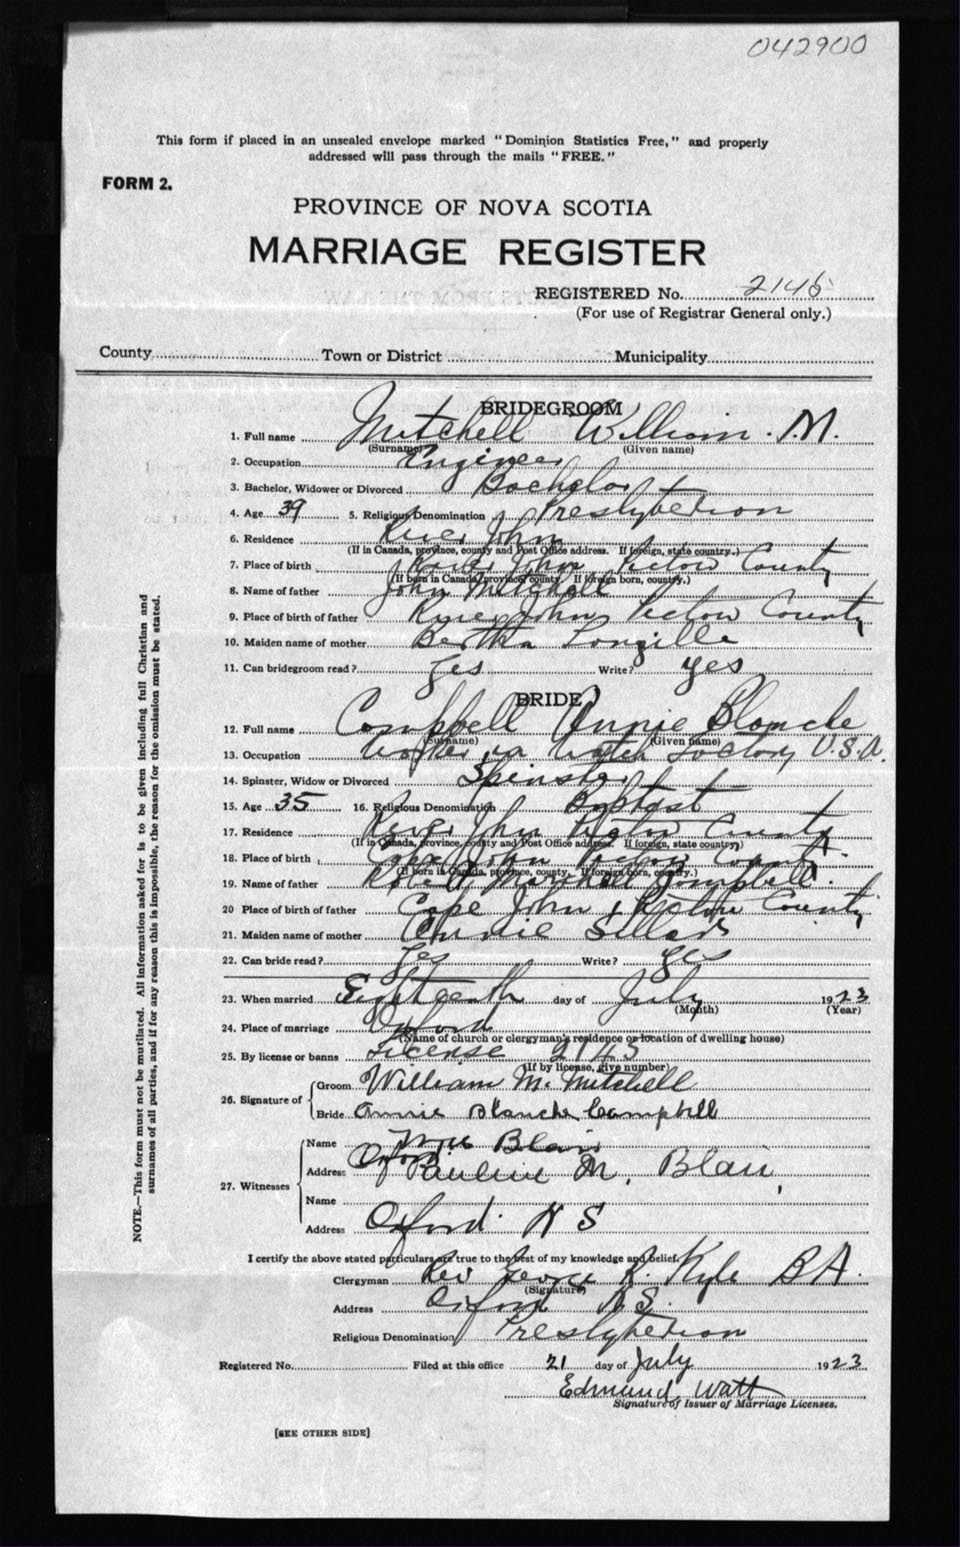 042900
This form if placed in an unsealed envelope marked "Dominion Statistics Free," and properly
addressed will pass through the mails "FREE."
FORM 2.
PROVINCE OF NOVA SCOTIA
MARRIAGE REGISTER
REGISTERED No. 2145
(For use of Registrar General only.)
County Town or District Municipality
BRIDEGROOM
1. Full name Mitchell William M.
(Surname) (Given name)
2. Occupation Engineer
3. Bachelor, Widower or Divorced Bachelor
4. Age 39 5. Religious Denomination Presbyterian
6. Residence River John
(If in Canada, province, county and Post Office address. If foreign, state country.)
7. Place of birth River John Pictou County
(If born in Canada, province, county. If foreign born, country.)
8. Name of father John Mitchell
9. Place of birth of father River John Pictou County
10. Maiden name of mother Bertha Longille
11. Can bridegroom read? Yes Write? yes
BRIDE
12. Full name Campbell Annie Blanche
(Surname) (Given name)
13. Occupation Worker in Watch Factory U.S.A.
14. Spinster, Widow or Divorced Spinster
15. Age 35 16. Religious Denomination Baptist
17. Residence River John Pictou County
(If in Canada, province, county and Post Office address. If foreign, state country)
18. Place of birth Cape John Pictou County
(If born in Canada, province, county. If foreign born, country.)
19. Name of father Robert Marshall Campbell.
20 Place of birth of father Cape John Pictou County
21. Maiden name of mother Annie Sellars
22. Can bride read? Yes Write? yes
23. When married Eighteenth day of July 1923
(Month) (Year)
24. Place of marriage Oxford
(Name of church or clergyman's residence or location of dwelling house)
25. By license or banns License 2145
(If by license, give number)
26. Signature of Groom William M. Mitchell
Bride Annie Blanche Campbell
27. Witnesses
Name Blair
Address Oxford
Pauline M. Blair,
Name
Address Oxford N S
I certify the above stated particulars are true to the best of my knowledge and belief.
Clergyman Rev George R. Kyle B A.
(Signature)
Address Oxford N.S.
Religious Denomination Presbyterian
Registered No. Filed at this office 21 day of July 1923
Edmund Watt
Signature of Issuer of Marriage Licenses.
[SEE OTHER SIDE]
NOTE.—This form must not be mutilated. All information asked for is to be given including full Christian and
surnames of all parties, and if for any reason this is impossible, the reason for the omission must be stated.